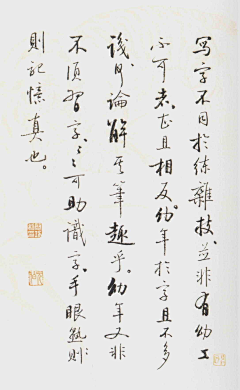 寫字不同於練雜技，並非有幼工
不可者，甚且相反。幼年於字且不多
識，何論解其筆趣乎。幼年又非
不須習字，習字可助識字，手眼熟則
則記憶真也。